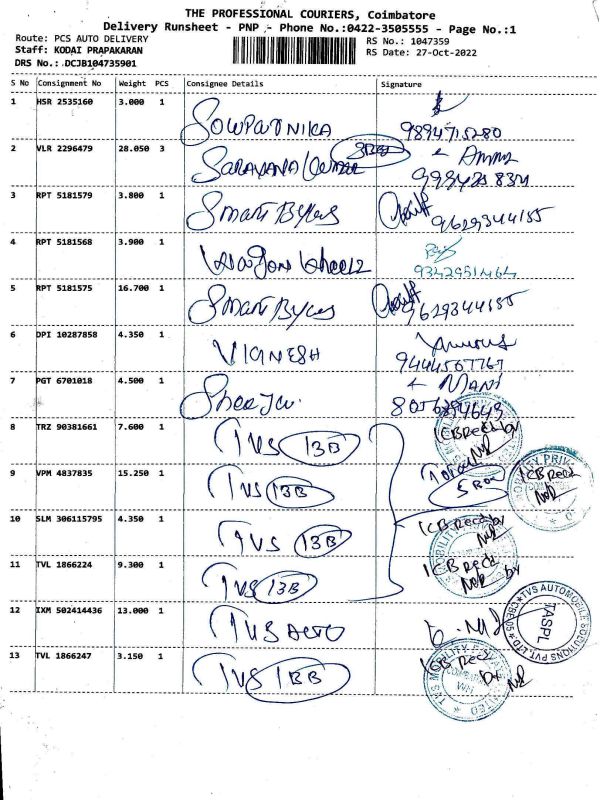 THE PROFESSIONAL COURIERS, Coimbatore
Delivery Runsheet - PNP - Phone No.:0422-3505555 - Page No.:1
Route: PCS AUTO DELIVERY
RS No.: 1047359
Staff: KODAI PRAPAKARAN
RS Date: 27-Oct-2022
DRS No.: DCJB104735901
S No Consignment No Weight PCS Consignee Details Signature
1 HSR 2535160 3.000 1 SOWPARNIKA
9894715280
2 VLR 2296479 28.050 3 SARAVANA
3 RPT 5181579 3.800 1 Smart Bytes 9629344155
4 RPT 5181568 3.900 1 Wagon Wheels
5 RPT 5181575 16.700 1 Smart Bytes 9629344155
6 DPI 10287858 4.350 1 VIGNESH
9444567767
7 PGT 6701018 4.500 1 MANI
8056894643
8 TRZ 90381661 7.600 1 TVS 13B
1CB Recd by
9 VPM 4837835 15.250 1 TVS 13B Total 5 Box 1CB Recd
10 SLM 306115795 4.350 1 TVS 13B 1CB Recd by
11 TVL 1866224 9.300 1 TVS 13B 1CB Recd by
12 IXM 502414436 13.000 1 TVS AUTO
TVS AUTOMOBILE SOLUTIONS PVT. LTD
TASPL
13 TVL 1866247 3.150 1 TVS 1BB 1CB Recd